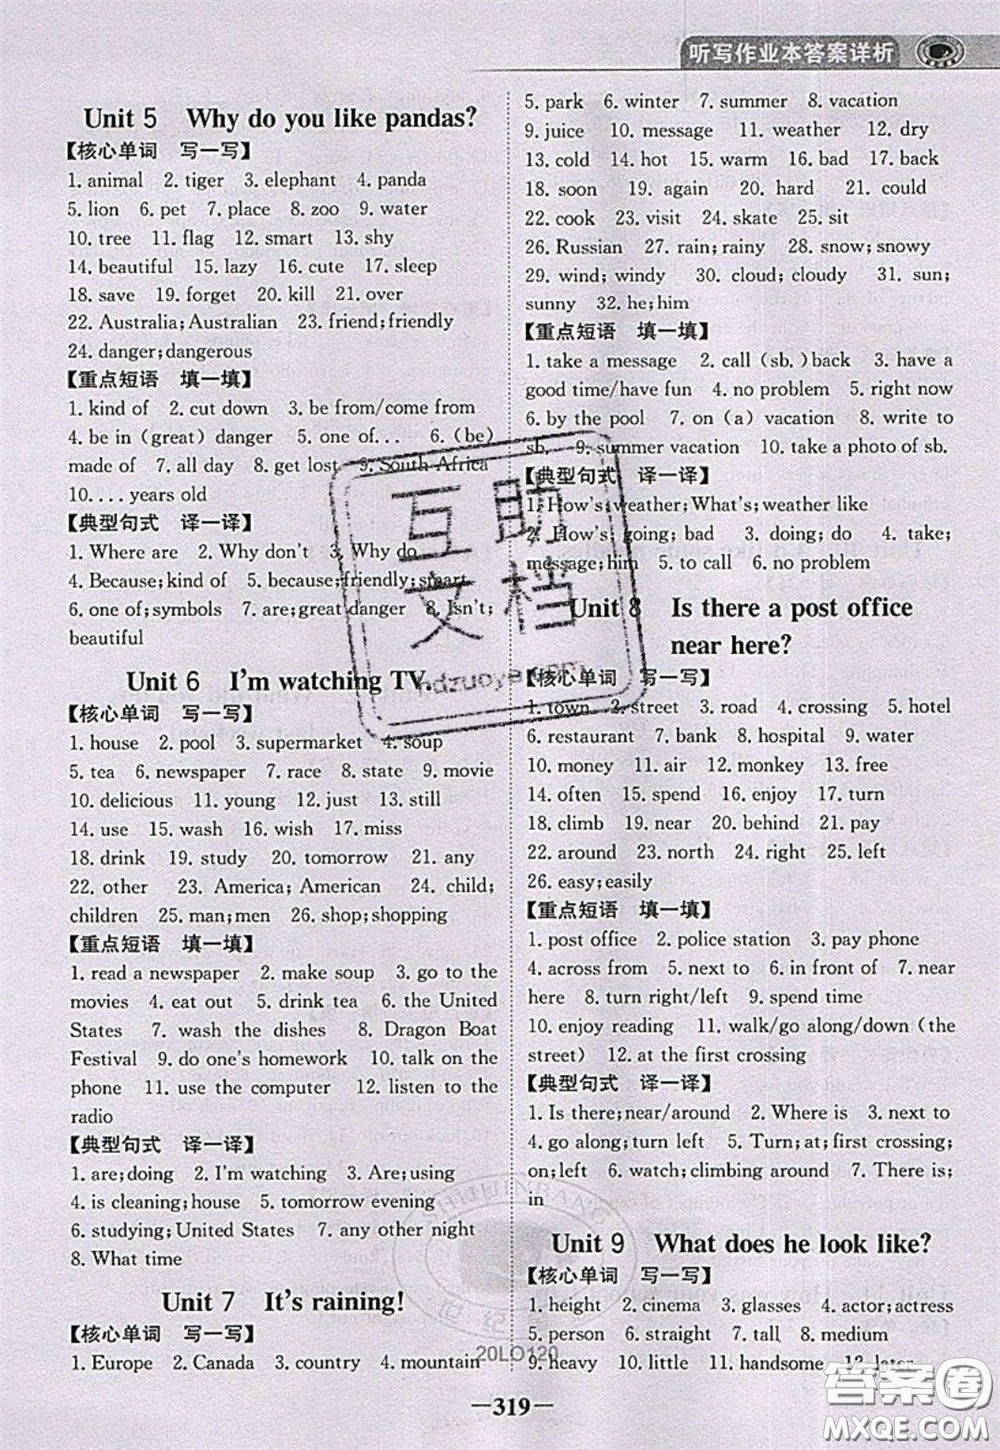 听写作业本答案详析
Unit 5 Why do you like pandas?
【核心单词 写一写】
1. animal 2. tiger 3. elephant 4. panda
5. lion 6. pet 7. place 8. zoo 9. water
10. tree 11. flag 12. smart 13. shy
14. beautiful 15. lazy 16. cute 17. sleep
18. save 19. forget 20. kill 21. over
22. Australia;Australian 23. friend;friendly
24. danger;dangerous
【重点短语 填一填】
1. kind of 2. cut down 3. be from/come from
4. be in (great) danger 5. one of... 6. (be)
made of 7. all day 8. get lost 9. South Africa
10. ... years old
【典型句式 译一译】
1. Where are 2. Why don't 3. Why do
4. Because;kind of 5. because;friendly;smart
6. one of;symbols 7. are;great danger 8. Isn't;
beautiful
Unit 6 I'm watching TV.
【核心单词 写一写】
1. house 2. pool 3. supermarket 4. soup
5. tea 6. newspaper 7. race 8. state 9. movie
10. delicious 11. young 12. just 13. still
14. use 15. wash 16. wish 17. miss
18. drink 19. study 20. tomorrow 21. any
22. other 23. America; American 24. child;
children 25. man;men 26. shop;shopping
【重点短语 填一填】
1. read a newspaper 2. make soup 3. go to the
movies 4. eat out 5. drink tea 6. the United
States 7. wash the dishes 8. Dragon Boat
Festival 9. do one's homework 10. talk on the
phone 11. use the computer 12. listen to the
radio
【典型句式 译一译】
1. are;doing 2. I'm watching 3. Are;using
4. is cleaning;house 5. tomorrow evening
6. studying;United States 7. any other night
8. What time
Unit 7 It's raining!
【核心单词 写一写】
1. Europe 2. Canada 3. country 4. mountain
5. park 6. winter 7. summer 8. vacation
9. juice 10. message 11. weather 12. dry
13. cold 14. hot 15. warm 16. bad 17. back
18. soon 19. again 20. hard 21. could
22. cook 23. visit 24. skate 25. sit
26. Russian 27. rain; rainy 28. snow; snowy
29. wind; windy 30. cloud; cloudy 31. sun;
sunny 32. he;him
【重点短语 填一填】
1. take a message 2. call (sb.)back 3. have a
good time/have fun 4. no problem 5. right now
6. by the pool 7. on (a) vacation 8. write to
sb. 9. summer vacation 10. take a photo of sb.
【典型句式 译一译】
1. How's;weather;What's;weather like
2. How's; going; bad 3. doing; do 4. take;
message;him 5. to call 6. no problem
Unit 8 Is there a post office
near here?
【核心单词 写一写】
1. town 2. street 3. road 4. crossing 5. hotel
6. restaurant 7. bank 8. hospital 9. water
10. money 11. air 12. monkey 13. free
14. often 15. spend 16. enjoy 17. turn
18. climb 19. near 20. behind 21. pay
22. around 23. north 24. right 25. left
26. easy;easily
【重点短语 填一填】
1. post office 2. police station 3. pay phone
4. across from 5. next to 6. in front of 7. near
here 8. turn right/left 9. spend time
10. enjoy reading 11. walk/go along/down (the
street) 12. at the first crossing
【典型句式 译一译】
1. Is there;near/around 2. Where is 3. next to
4. go along;turn left 5. Turn;at;first crossing;
on;left 6. watch;climbing around 7. There is;
in
Unit 9 What does he look like?
【核心单词 写一写】
1. height 2. cinema 3. glasses 4. actor;actress
5. person 6. straight 7. tall 8. medium
9. heavy 10. little 11. handsome 12. later
20LO120
—319—
互助
文档
hdzuoye.com
答案圈
MXQE.COM